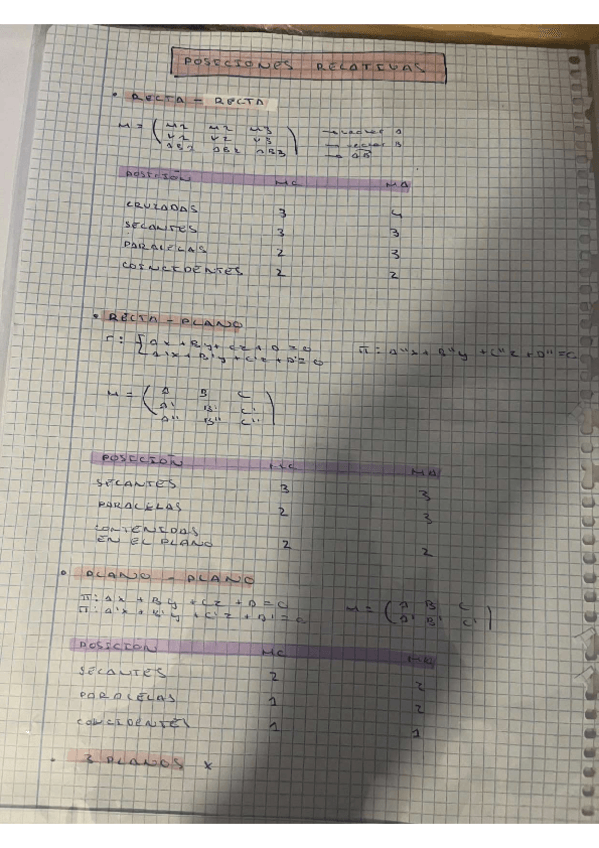 POSICIONES RELATIVAS
• RECTA - RECTA
M = ( u1 u2 u3 ) → vector A
v1 v2 v3 → vector B
AB1 AB2 AB3 → AB
POSICIÓN MC MA
CRUZADAS 3 4
SECANTES 3 3
PARALELAS 2 3
COINCIDENTES 2 2
• RECTA - PLANO
r: { Ax + By + Cz + D = 0 π: A''x + B''y + C''z + D'' = 0
A'x + B'y + C'z + D' = 0
M = ( A B C )
A' B' C'
A'' B'' C''
POSICIÓN MC MA
SECANTES 3 3
PARALELAS 2 3
CONTENIDAS
EN EL PLANO 2 2
• PLANO - PLANO
π: Ax + By + Cz + D = 0 M = ( A B C )
π: A'x + B'y + C'z + D' = 0 A' B' C'
POSICIÓN MC MA
SECANTES 2 2
PARALELAS 1 2
COINCIDENTES 1 1
• 3 PLANOS *